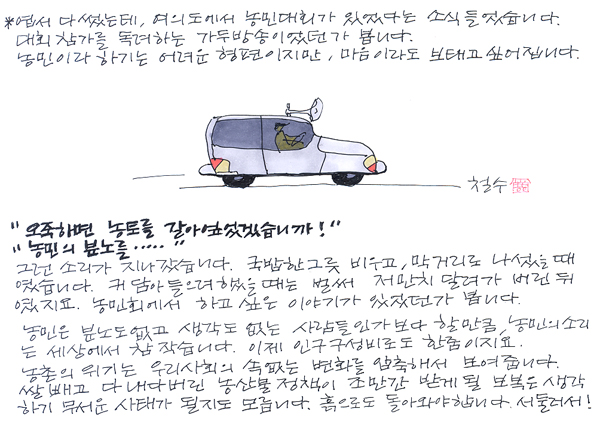 *엽서 다 썼는데, 여의도에서 농민대회가 있었다는 소식 들었습니다.
대회 참가를 독려하는 가두방송이었던가 봅니다.
농민이라 하기는 어려운 형편이지만, 마음이라도 보태고 싶어집니다.
철수
"오죽하면 농토를 갈아엎었겠습니까!"
"농민의 분노를....."
그런 소리가 지나갔습니다. 국밥 한그릇 비우고, 막 거리로 나섰을 때
였습니다. 귀 담아 들으려 했을 때는 벌써 저만치 달려가 버린 뒤
였지요. 농민회에서 하고 싶은 이야기가 있었던가 봅니다.
농민은 분노도 없고 생각도 없는 사람들인가보다 할만큼, 농민의 소리
는 세상에서 참 작습니다. 이제 인구구성비로도 한줌이지요.
농촌의 위기는 우리사회의 속없는 변화를 압축해서 보여줍니다.
쌀 빼고 다 내다버린 농산물 정책이 조만간 받게 될 보복은 생각
하기 무서운 사태가 될지도 모릅니다. 흙으로 돌아와야 합니다. 서둘러서!